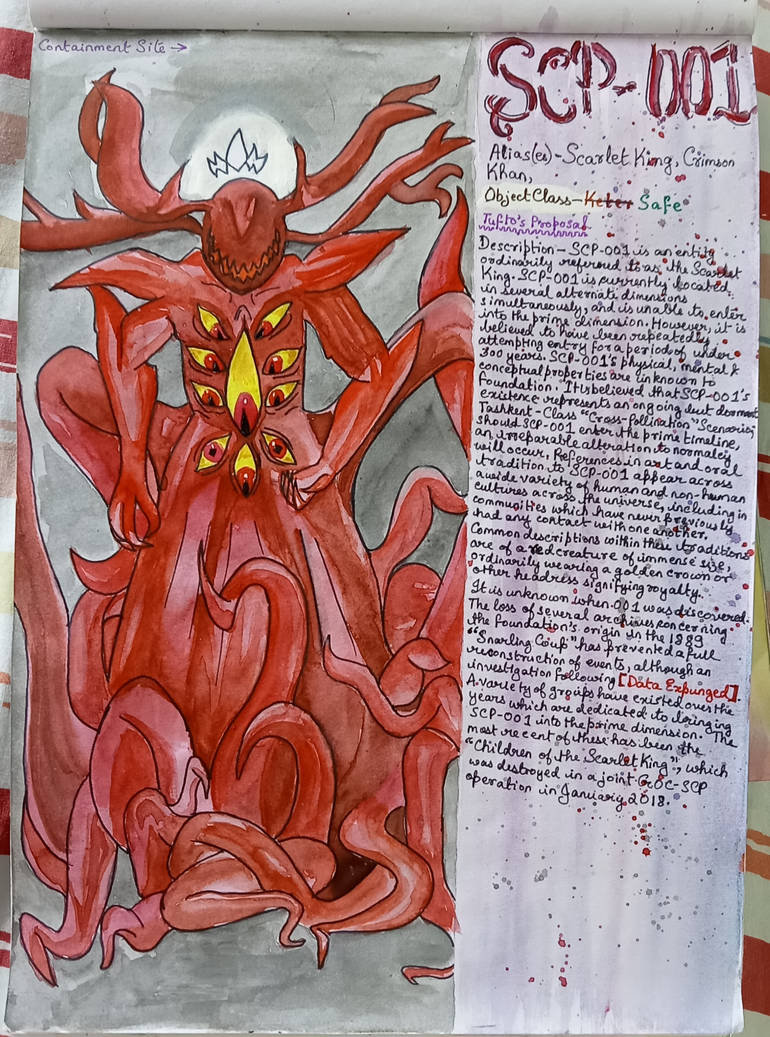 Containment Site →
SCP-001
Alias(es) - Scarlet King, Crimson
Khan,
Object Class - Keter Safe
Tufto's Proposal
Description - SCP-001 is an entity
ordinarily referred to as the Scarlet
King. SCP-001 is currently located
in several alternate dimensions
simultaneously, and is unable to enter
into the prime dimension. However, it is
believed to have been repeatedly
attempting entry for a period of under
300 years. SCP-001's physical, mental &
conceptual properties are unknown to
Foundation. It is believed that SCP-001's
existence represents an ongoing but dormant
Tashkent-Class "Cross-Pollination" Scenario;
should SCP-001 enter the prime timeline,
an irreparable alteration to normalcy
will occur. References in art and oral
tradition to SCP-001 appear across
a wide variety of human and non-human
cultures across the universe, including in
communities which have never previously
had any contact with one another.
Common descriptions within these traditions
are of a red creature of immense size,
ordinarily wearing a golden crown or
other headdress signifying royalty.
It is unknown when 001 was discovered.
The loss of several archives concerning
the foundation's origin in the 1889
"Snarling Coup" has prevented a full
reconstruction of events, although an
investigation following [Data Expunged].
A variety of groups have existed over the
years which are dedicated to bringing
SCP-001 into the prime dimension. The
most recent of these has been the
"Children of the Scarlet King", which
was destroyed in a joint GOC-SCP
operation in January 2018.